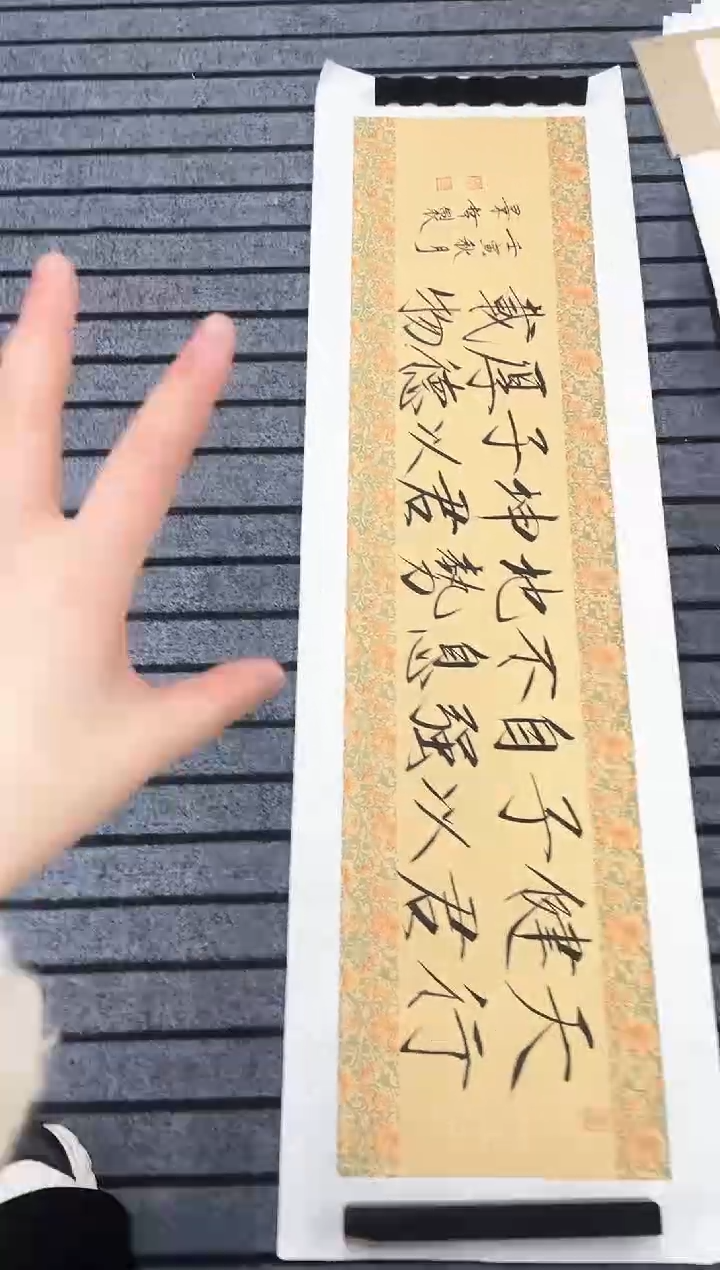 天行
健君
子以
自强
不息
地勢
坤君
子以
厚德
載物
壬寅秋月